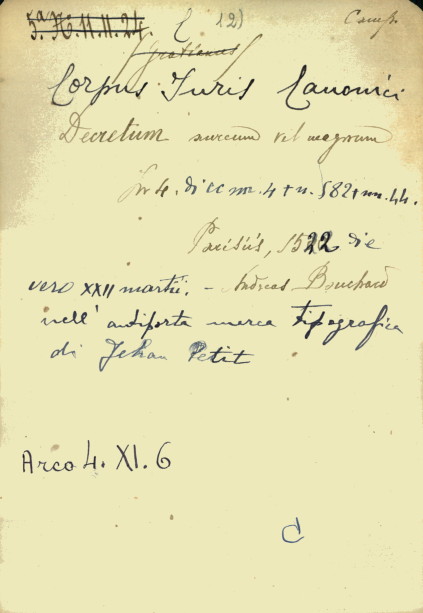 5ª H. 11. 11. 24. C 12) Camp.
Gratianus
Corpus Juris Canonici
Decretum aureum vel magnum
In 4. di cc nn. 4 + n. 582 + nn. 44.
Parisiis, 1522 die
vero XXII martii. – Andreas Bouchard
nell' antiporta marca tipografica
di Jehan Petit
Arco 4. XI. 6
C